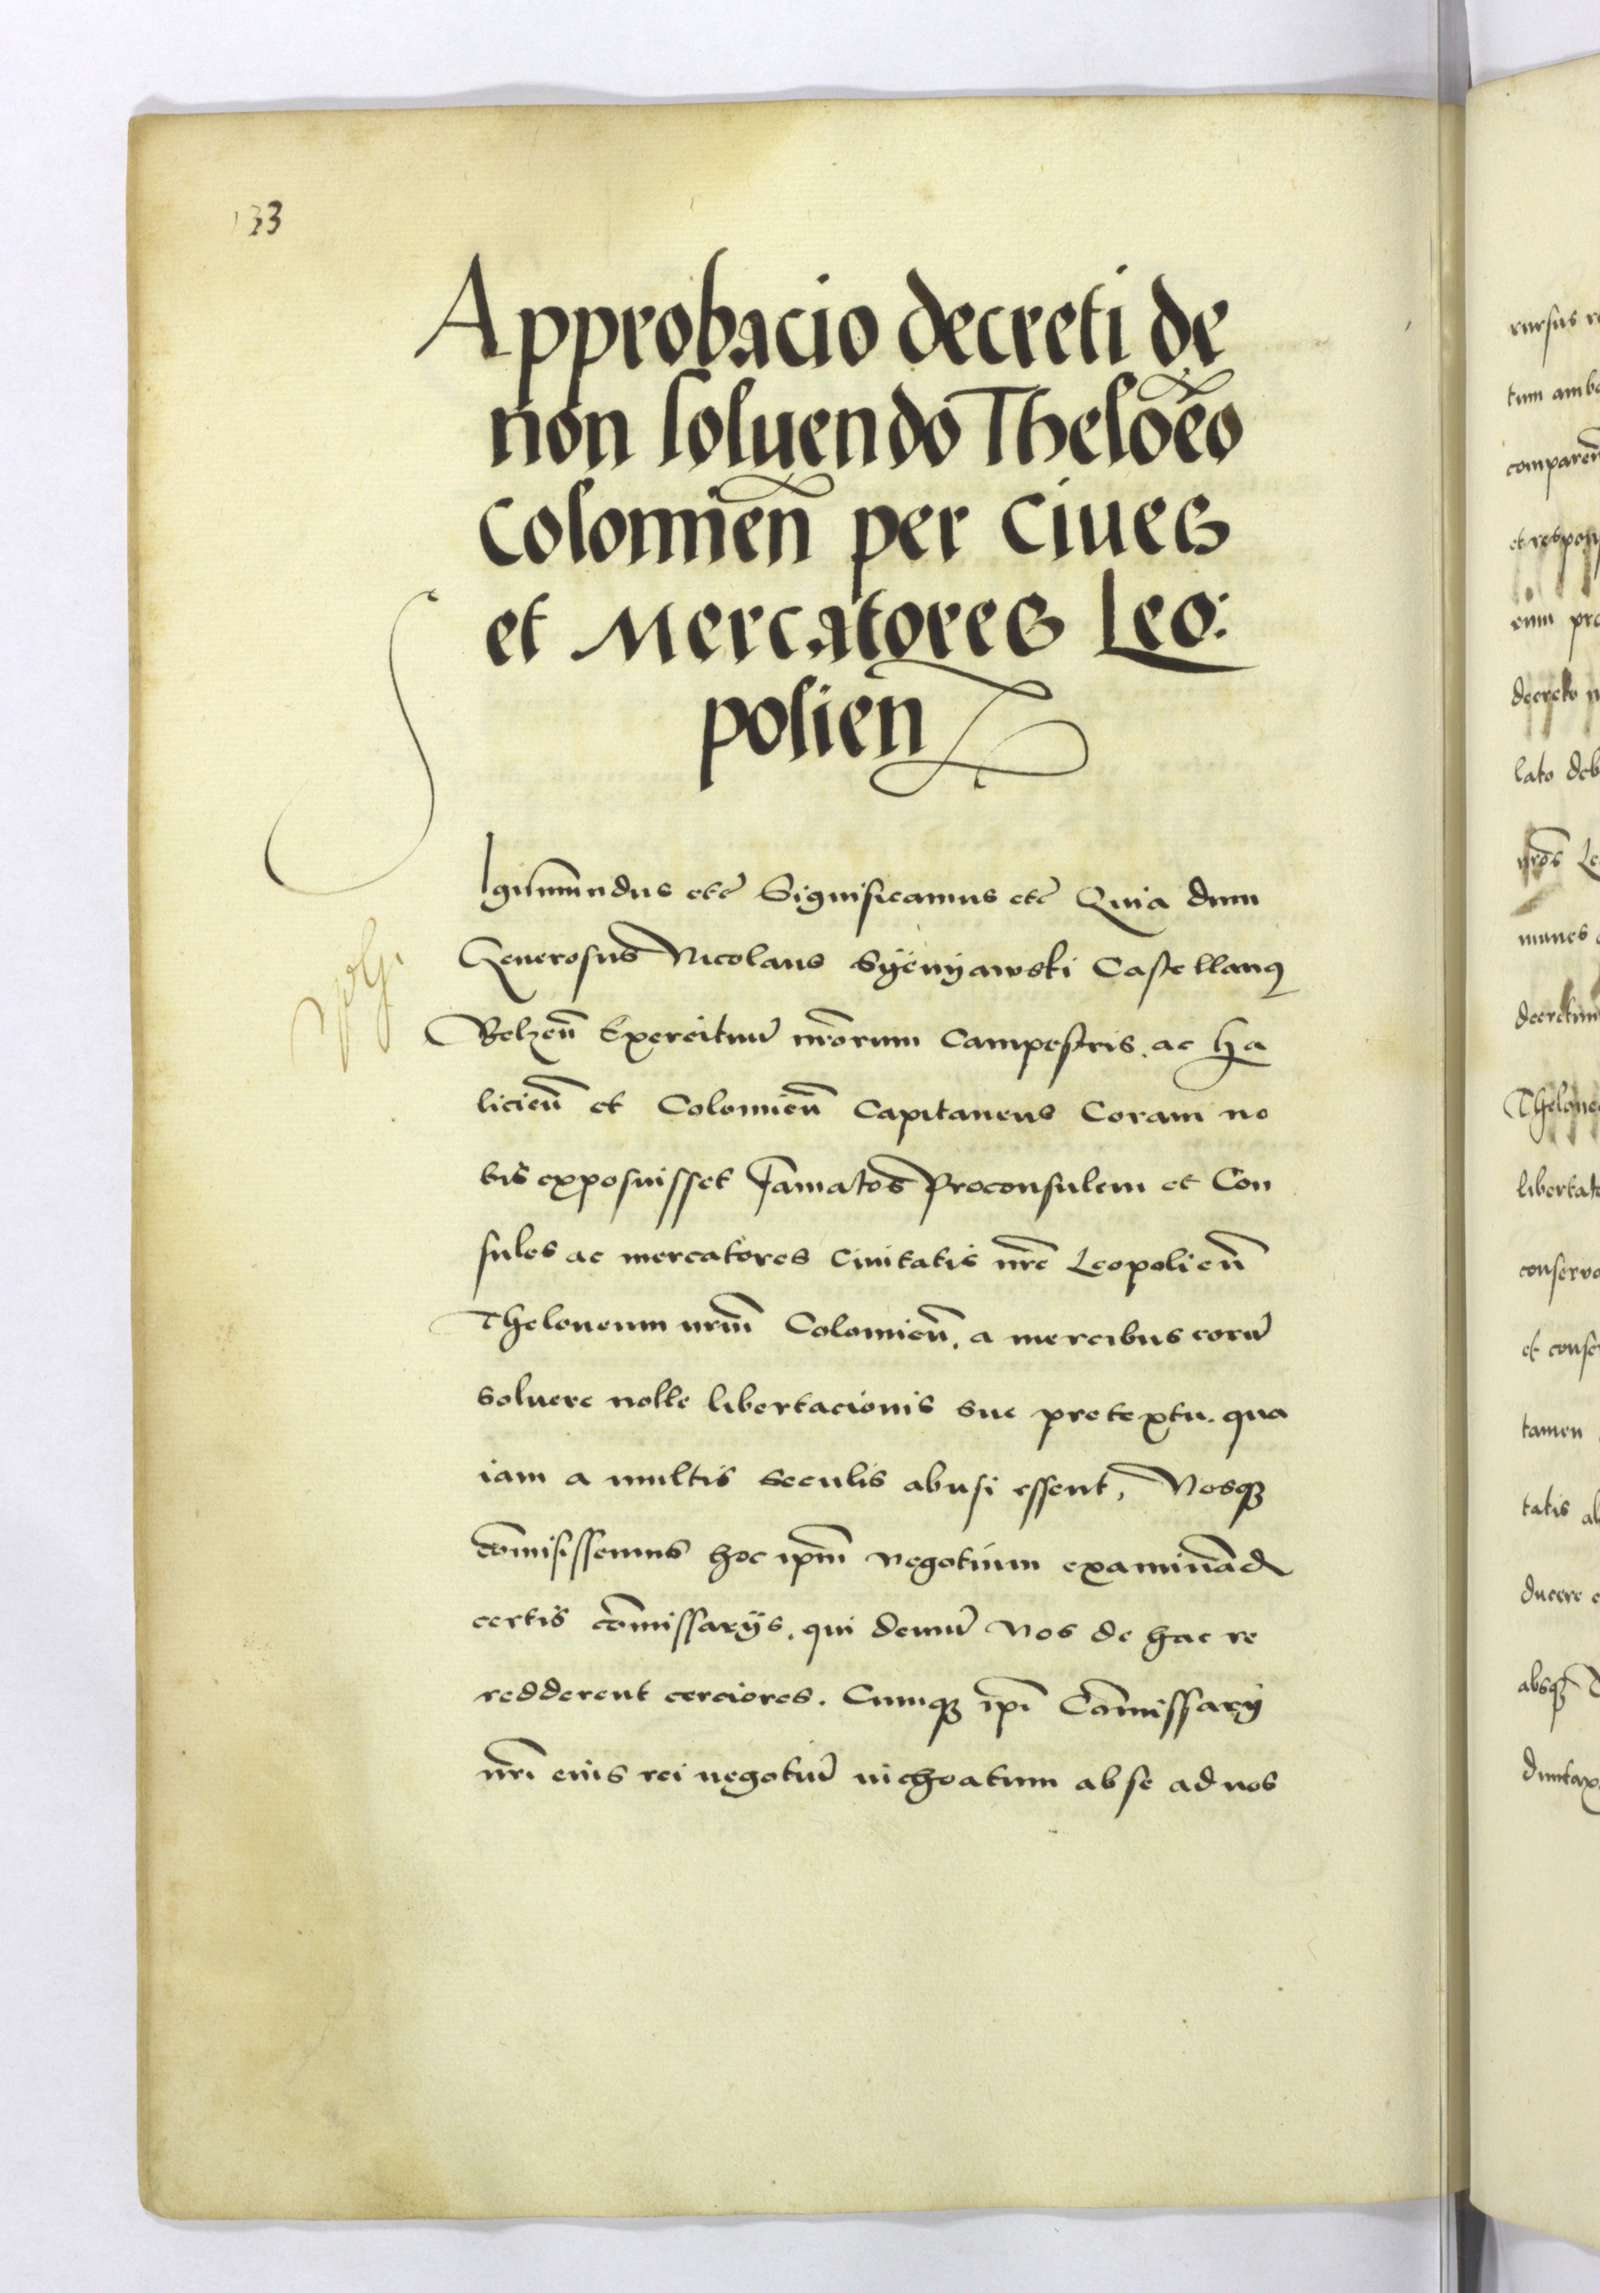 133
Approbacio decreti de
non soluendo Theloēo
Colomieñ per Ciues
et Mercatores Leo:
polieñ
Sigismundus etc̄ Significamus etc̄ Quia dum
Generosus Nicolaus Syenyawski Castellanꝰ
Belzeñ Exercituū nr̄orum Campestris. ac Ha
licieñ et Colomieñ Capitaneus Coram no
bis exposuisset famatos Proconsulem et Con
sules ac mercatores Ciuitatis nr̄e Leopolieñ
Theloneum nrm̄ Colomieñ. a mercibus eorū
soluere nolle libertacionis sue pretextu. qua
iam a multis seculis abusi essent, Nosqꝫ
com̄isissemus hoc ipm̄ negotium examinand
certis com̄issarÿs. qui demū nos de hac re
redderent cerciores. Cumqꝫ ipī Com̄issarÿ
nr̄i eius rei negotiū inchoatum ab se ad nos
rursus
tum
et respon
decreto
lato
munes
decretum
conserva
tamen
tatis
ducere
absqꝫ